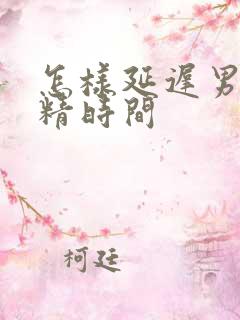 怎樣延遲男
精時間
柯廷